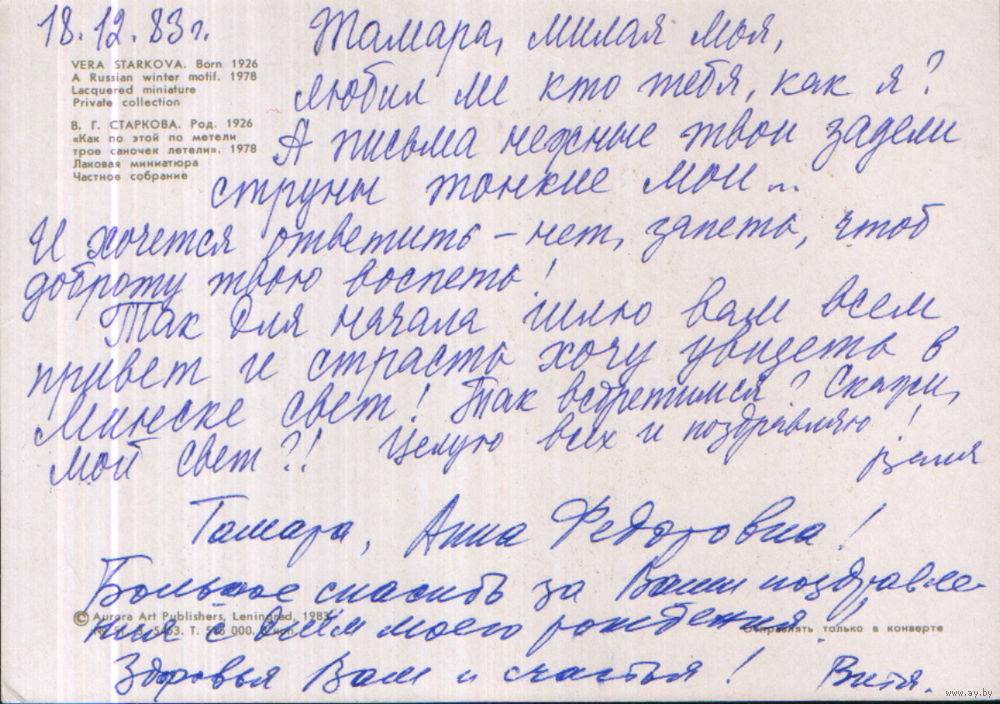 18.12.83г.
VERA STARKOVA. Born 1926
A Russian winter motif. 1978
Lacquered miniature
Private collection
В. Г. СТАРКОВА. Род. 1926
«Как по этой по метели
трое саночек летели». 1978
Лаковая миниатюра
Частное собрание
Тамара, милая моя,
любил ли кто тебя, как я?
А письма нежные твои задели
струны тонкие мои...
И хочется ответить – нет, запеть, чтоб
доброту твою воспеть!
Так для начала шлю вам всем
привет и страсть хочу увидеть в
Минске свет! Так встретимся? Скажи,
мой свет?! Целую всех и поздравляю!
Тамара, Анна Федоровна!
Большое спасибо за Ваши поздравле-
ния с днём моего рождения.
Здоровья Вам и счастья! Витя.
© Aurora Art Publishers, Leningrad, 1983
Отправлять только в конверте
www.ay.by